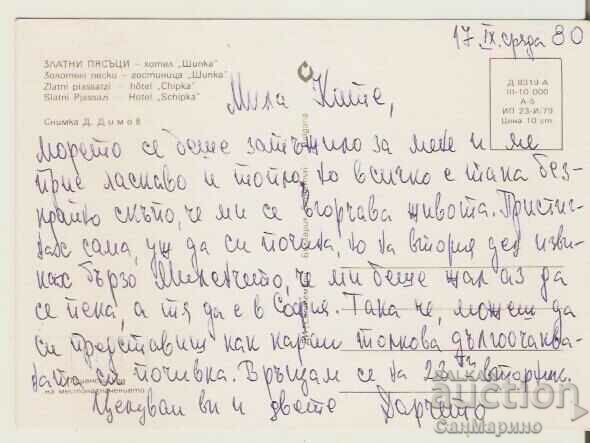 17.IX.сряда 80
ЗЛАТНИ ПЯСЪЦИ – хотел „Шипка"
Золотые пески – гостиница „Шипка"
Zlatni piassatzi – hôtel „Chipka"
Slatni Pjassazi – Hotel „Schipka"
Снимка Д. Димов
Д 8319-А
III-10 000
А-5
ИП 23-И/79
Цена 10 ст.
Мила Кате,
морето се беше затъжило за мене и ме
прие ласкаво и топло, но всичко е така без-
крайно скъпо, че ми се вгорчава живота. Пристиг-
нах сама, уж да си почина, но на втория ден изви-
ках бързо Миленчето, че ми беше жал аз да
се пека, а тя да е в София. Така че, можеш да
си представиш как карам толкова дългоочаква-
ната си почивка. Връщам се на 23ти вторник.
Целувам ви и двете Дарчето
на местоназначението
BALKAN
auction
СанМарино